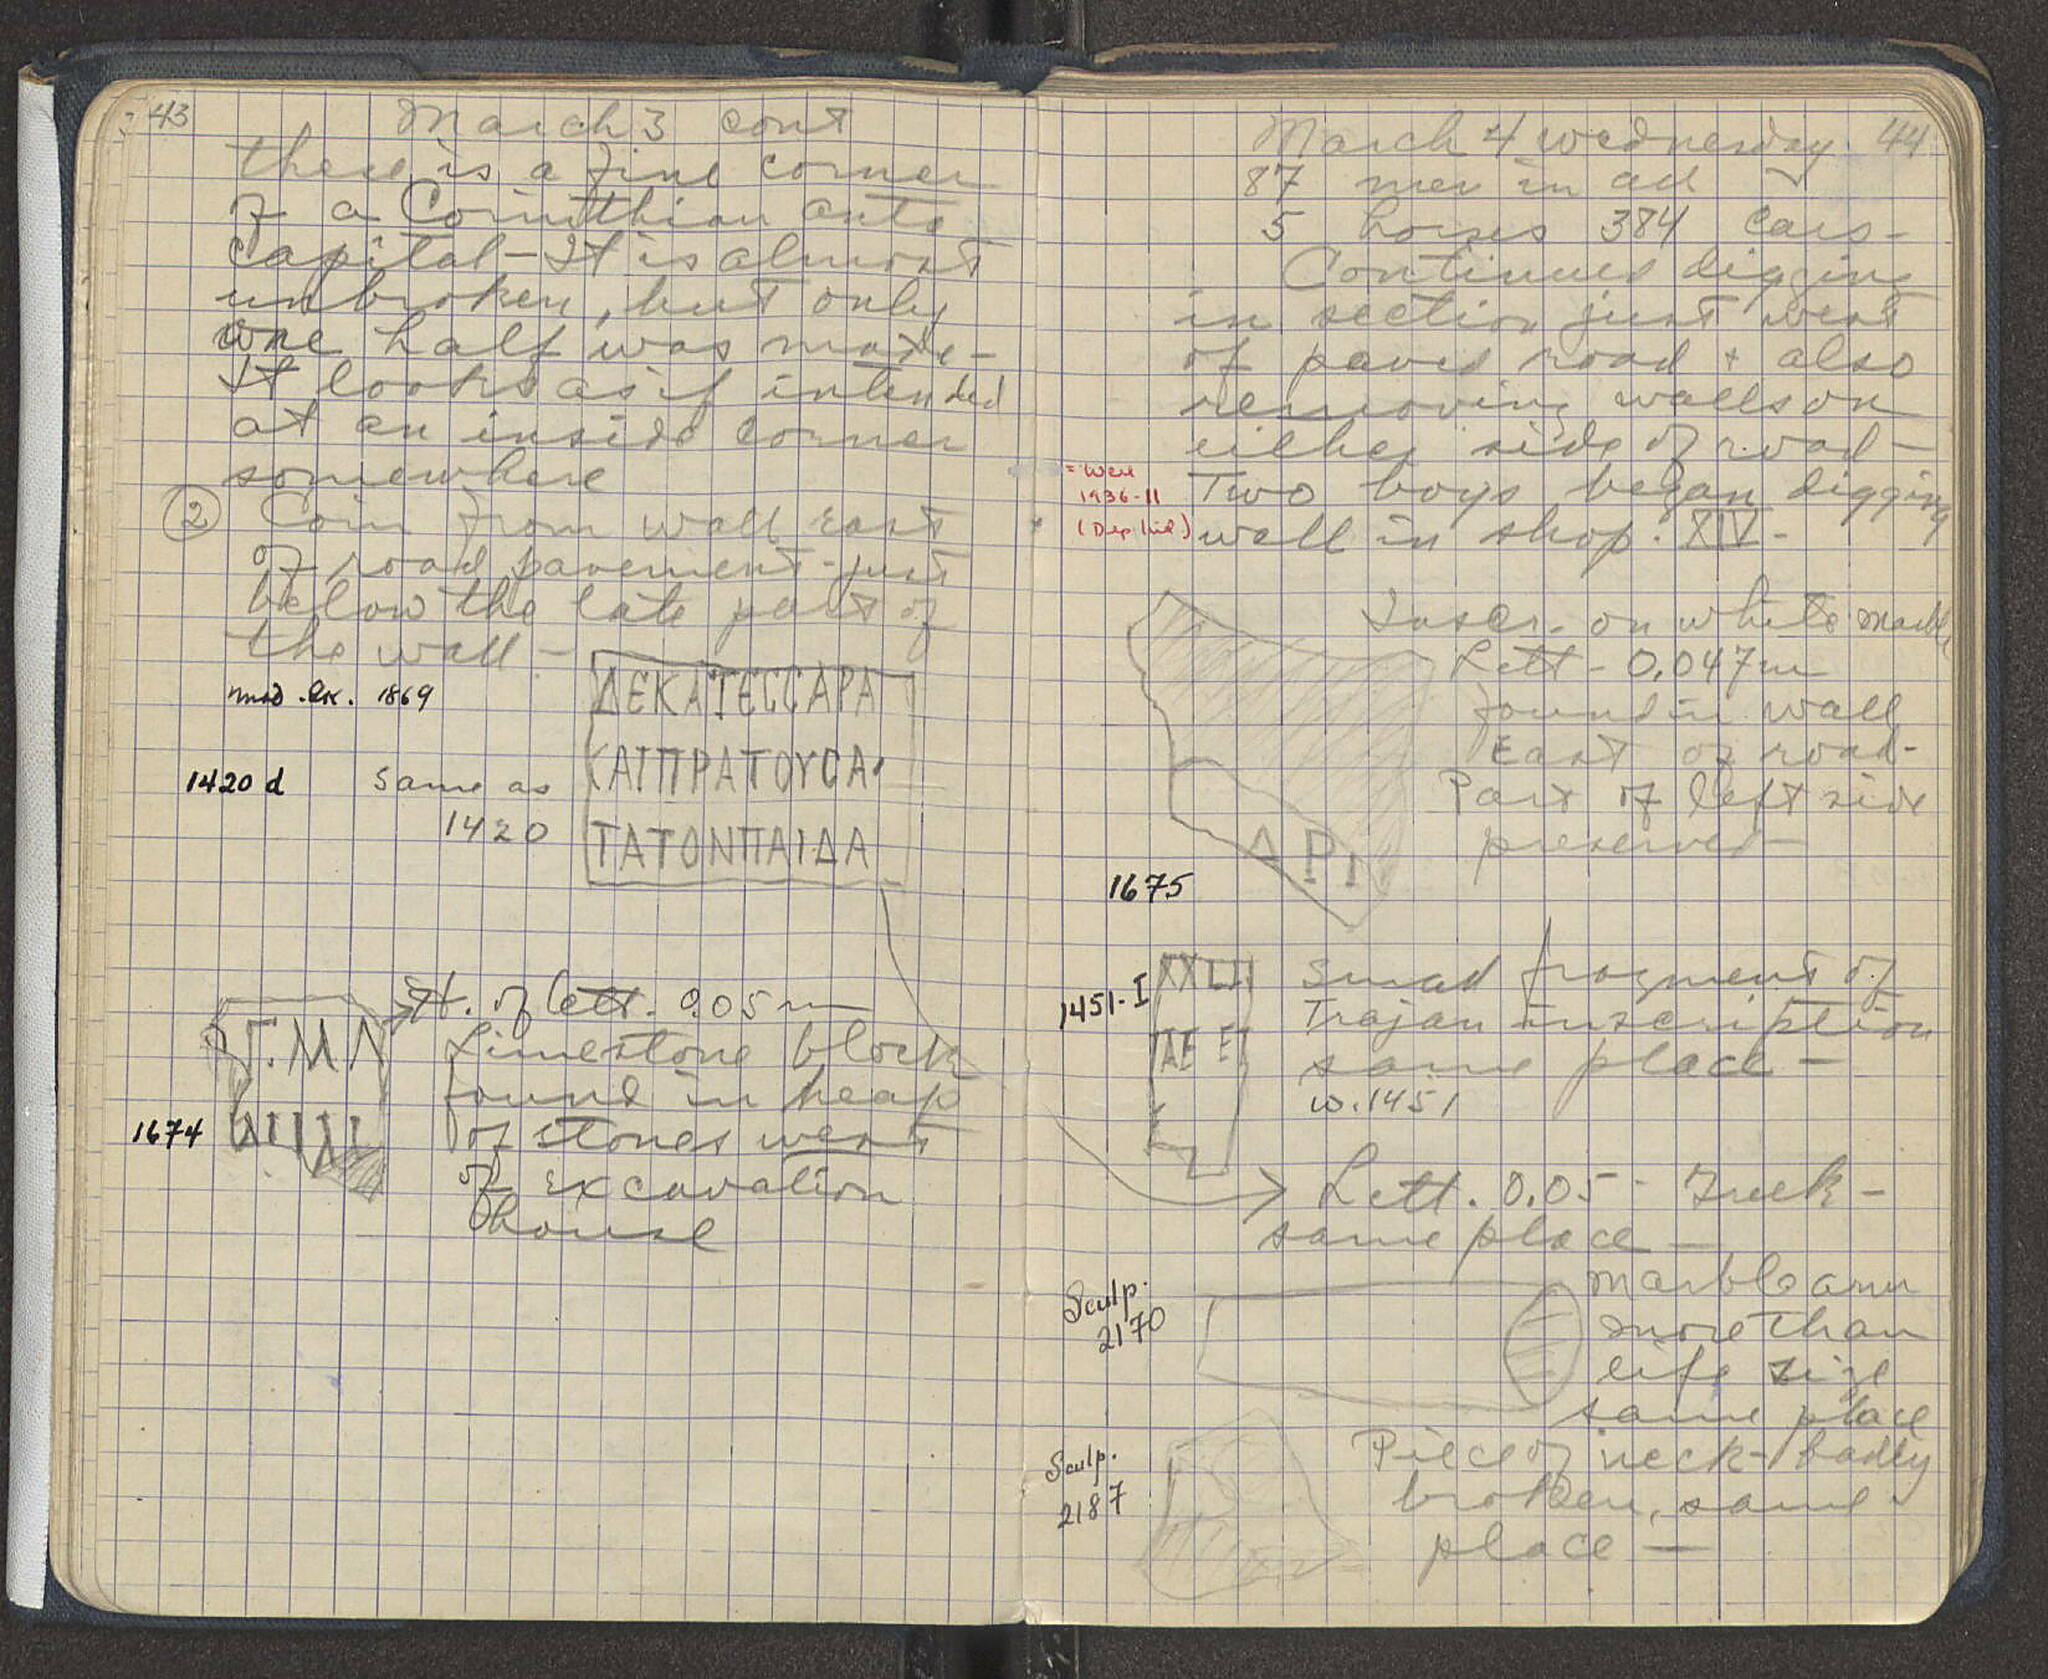 43
March 3 cont
there is a fine corner
of a Corinthian anta
capital - It is almost
unbroken, but only
one half was made -
It looks as if intended
at an inside corner
somewhere
② Coin from wall east
of road pavement - just
below the late part of
the wall -
1869
ΔΕΚΑΤΕCCΑΡΑ
ΚΑΙΠΡΑΤΟΥCΑ
ΤΑΤΟΝΠΑΙΔΑ
1420 d
Same as
1420
H. of lett. 0.05 m
Limestone block
found in heap
of stones west
of excavation
house
1674
March 4 Wednesday. 44
87 men in all
5 horses 384 cars -
Continued digging
in section just west
of paved road + also
removing walls on
either side of road -
Two boys began digging
well in shop. XIV -
= Well
1936-11
Inscr. on white marble
Lett - 0.047 m
found in wall
East of road -
Part of left side
preserved -
ΔΡΙ
1675
1451-I
XXLII
Small fragment of
Trajan inscription
same place -
w. 1451
Lett. 0.05 - Greek -
same place -
Sculp.
2170
marble arm
more than
life size
same place
Sculp.
2187
Piece of neck - badly
broken, same
place -